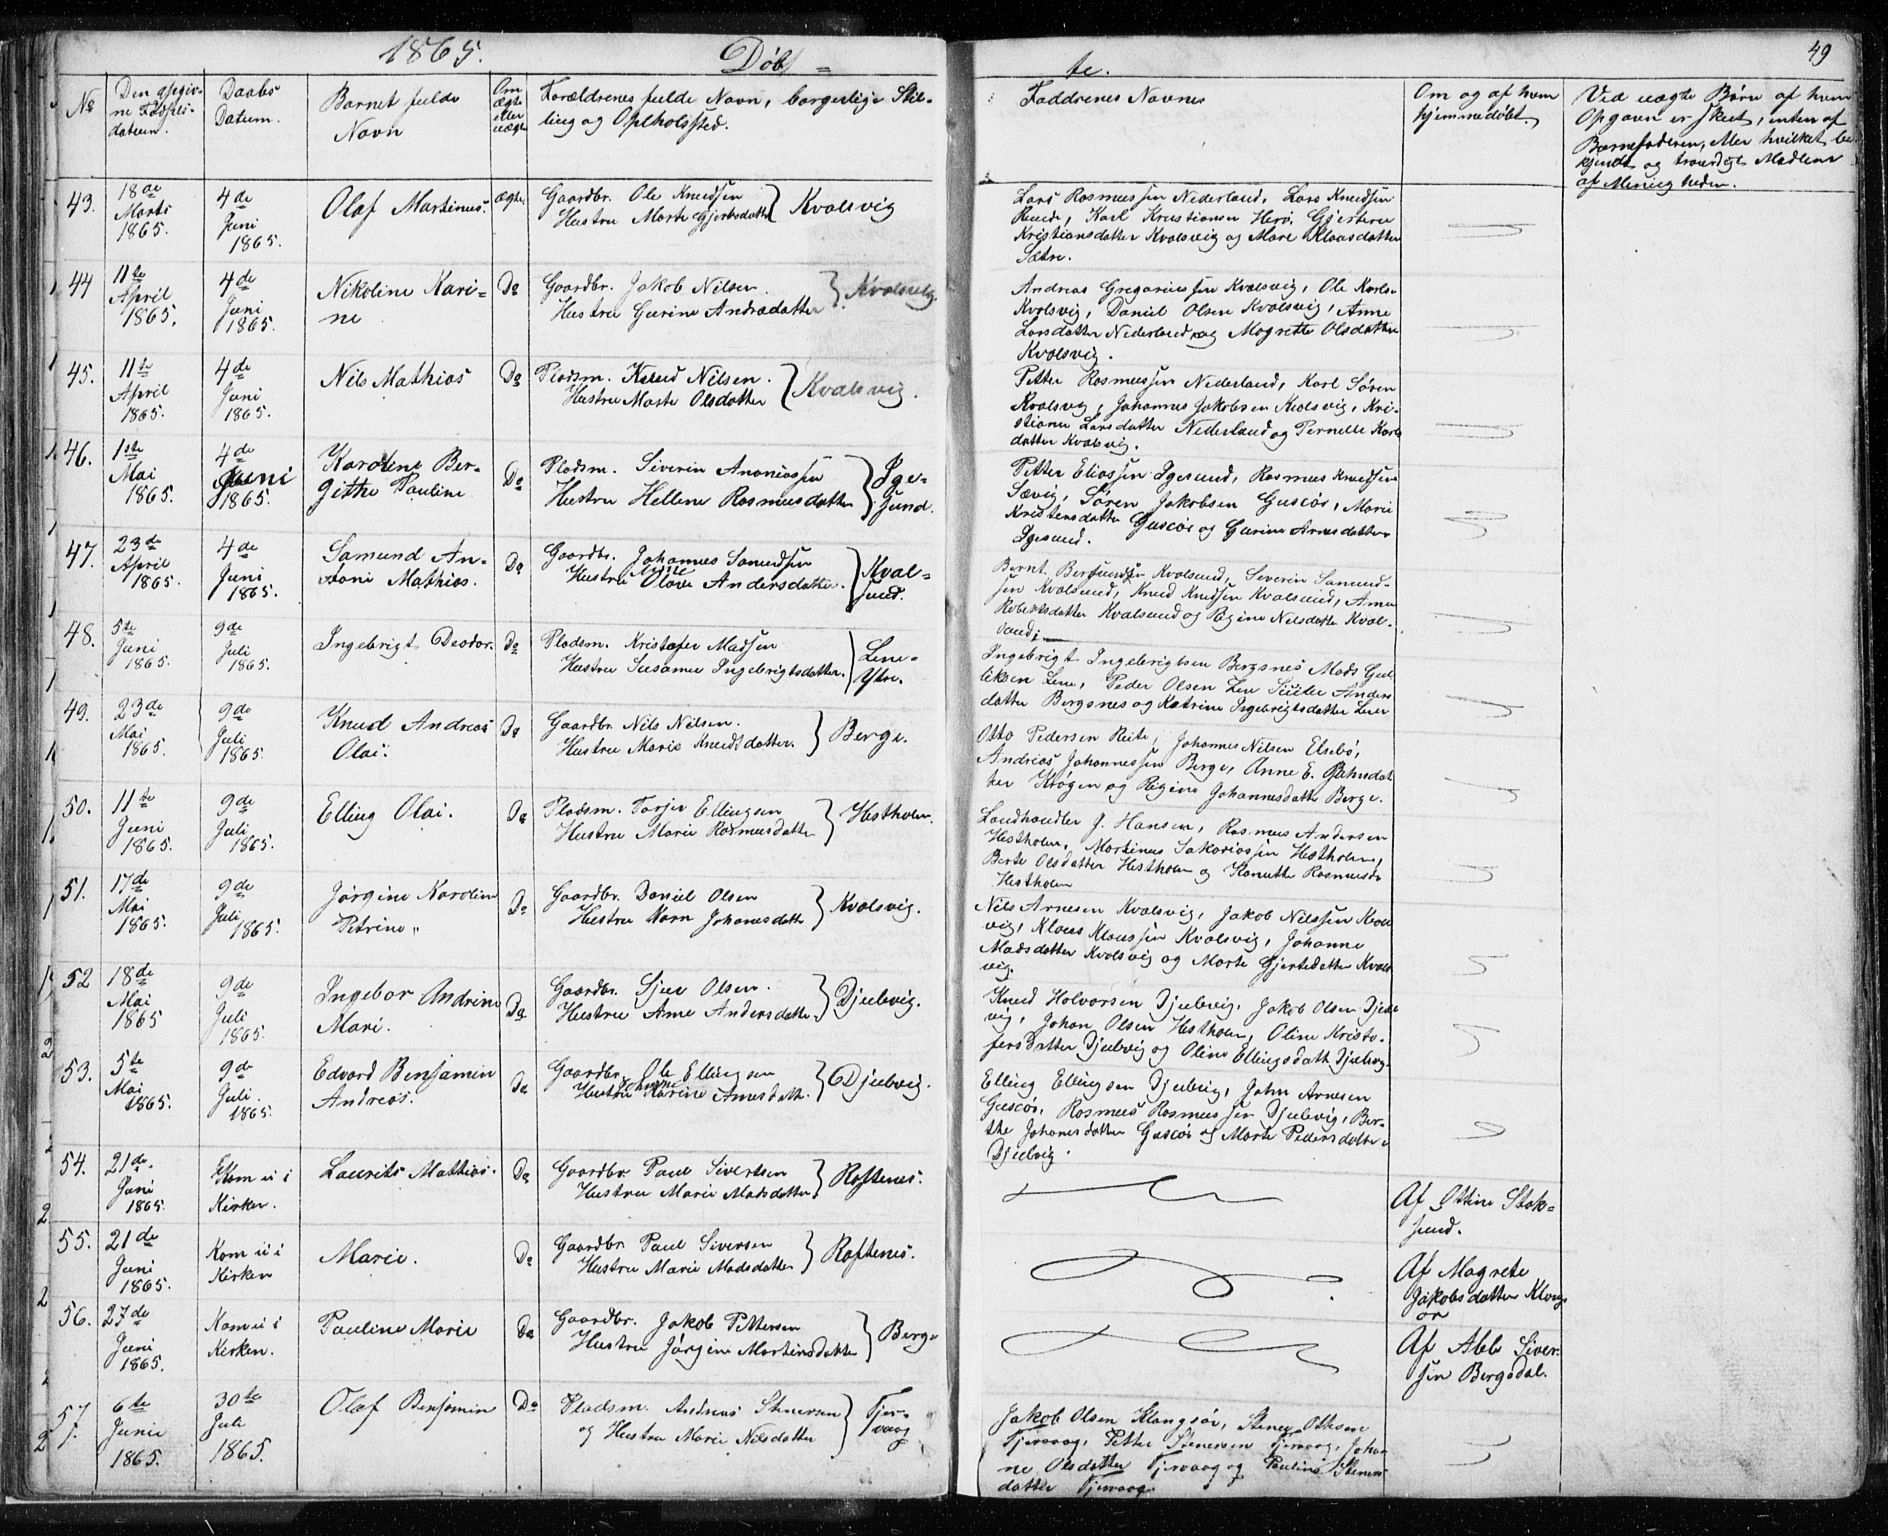 1865.
Døb =
te.
49
No
Den opgivne Fødselsdatum.
Daabs Datum.
Barnet fulde Navn
Om ægte eller uægte
Forældrenes fulde Navn, borgerlige Stilling og Opholdssted.
Faddrenes Navne
Om og af hvem hjemmedøbt.
Ved uægte Børn af hvem Opgaven er skeet, enten af Barnefaderen, eller hvilket bekjendt og troværdigt Medlem af Menigheden.
43.
18de Marts 1865.
4de Juni 1865.
Olaf Martinus.
ægte
Gaardbr. Ole Knudsen
Hustru Marte Gjertsdatter
Kvalsvig
Lars Rasmussen Nederland, Lars Knudsen
Karl Kristiansen Herø,
Kristiansdatter Kvalsvig og Mari Klausdatter
Sætre.
44
11te April 1865.
4de Juni 1865.
Nikoline Karine
Do
Gaardbr. Jakob Nilsen.
Hustru Gurine Andreadatter
Kvalsvig
Andreas Gregoriussen Kvalsvig, Ole Karls.
Kvalsvig, Daniel Olsen Kvalsvig, Anne
Larsdatter Nederland og Magrette Olsdatter
Kvalsvig.
45.
11te April 1865.
4de Juni 1865.
Nils Mathias
Do
Pladsm. Knud Nilsen.
Hustru Marte Olsdatter
Kvalsvig.
Petter Rasmussen Nederland, Karl Søren
Kvalsvig, Johannes Jakobsen Kvalsvig, Kri-
stiane Larsdatter Nederland og Pernelle Karls
datter Kvalsvig.
46.
1ste Mai 1865.
4de Juni 1865.
Karoline Bergithe Pauline
Do
Pladsm. Siverin Ananiassen
Hustru Hellene Rasmusdatter
Igesund.
Petter Eliassen Igesund, Rasmus Knudsen
Sævig, Søren Jakobsen Guscør, Marie
Kristensdatter Guscør og Gurine Arnesdatter
Igesund.
47.
23de April 1865.
4de Juni 1865.
Samund Antoni Mathias.
Do
Gaardbr. Johannes Samundsen
Hustru Olave Andersdatter.
Kvalsund.
Bernt Berntsen Kvalsund, Severin Samund-
sen Kvalsund, Knud Knudsen Kvalsund, Anne
Robertsdatter Kvalsund og Regine Nilsdatter Kval-
sund.
48.
5te Juni 1865.
9de Juli 1865.
Ingebrigt Deodor.
Do
Pladsm. Kristofer Madsen
Hustru Susanne Ingebrigtsdatter.
Lene-Ytre.
Ingebrigt Ingebrigtsen Bergsnes, Mads Gul-
liksen Lene, Peder Olsen Lene Anders
datter Bergsnes og Katrine Ingebrigtsdatter Lene
49.
23de Mai 1865.
9de Juli 1865.
Knud Andreas Olai.
Do
Gaardbr. Nils Nilsen.
Hustru Marie Knudsdatter.
Berge.
Otto Pedersen Reite, Johannes Nilsen Elsebø,
Andreas Johannessen Berge, Anne E.
Krøgen og Regine Johannesdatter Berge.
50.
11te Juni 1865.
9de Juli 1865.
Elling Olai.
Do
Pladsm. Torjer Ellingsen
Hustru Marie Rasmusdatter
Hestholm.
Landhandler J. Hansen, Rasmus Andersen
Hestholm, Martinus Sakariassen Hestholm,
Berte Olsdatter Hestholm og Kanutte Rasmusd.
Hestholm
51.
17de Mai 1865.
9de Juli 1865.
Jørgine Karoline Petrine
Do
Gaardbr. Daniel Olsen
Hustru Karn Johanesdatter
Kvalsvig.
Nils Arnesen Kvalsvig, Jakob Nilssen Kval-
vig, Klaus Klaussen Kvalsvig, Johanne
Madsdatter Kvalsvig og Marte Gjertsdatter Kvals-
vig.
52
18de Mai 1865
9de Juli 1865.
Ingebor Andrine Mari.
Do
Gaardbr. Sjur Olsen.
Hustru Ane Andersdatter.
Djubvig.
Knud Halvorsen Djubvig, Jakob Olsen Djub-
vig, Johan Olsen Hestholm, Oline Kristo-
fersdatter Djubvig og Oline Ellingsdatt. Djubvig.
53.
5te Mai 1865.
9de Juli. 1865.
Edvard Benjamin Andreas.
Do
Gaardbr. Ole Ellingsen
Hustru Karine Arnesdatt.
Djubvig.
Elling Ellingsen Djubvig, John Arnesen
Guscør, Rasmus Rasmussen Djubvig, Ber-
the Johanesdatter Guscør og Marte Pedersdatter
Djubvig.
54.
21de Juni 1865.
Kom ei i Kirken.
Laurits Mathias.
Do
Gaardbr. Paul Sivertsen
Hustru Marie Madsdatter
Røftenes.
Af Ottine Stoksund.
55.
21de Juni 1865.
Kom ei i Kirken
Marie.
Do
Gaardbr. Paul Siversen
Hustru Marie Madsdatter
Røftenes.
Af Magrete Jakobsdatter Klovgsør
56.
27de Juni 1865.
Kom ei i Kirken.
Pauline Marie
Do
Gaardbr. Jakob Pettersen
Hustru Jørgine Martinsdatter
Berge
Af Abb. Siversen Bergsdal.
57.
6te Juni 1865.
30te Juli 1865.
Olaf Benjamin
Do
Pladsm. Andreas Stenersen
og Hustru Marie Nilsdatter
Tjervaag
Jakob Olsen Klangsør, Stener Ottesen
Tjervaag, Petter Stenersen Tjervaag, Johan-
ne Olsdatter Tjervaag og Pauline Steners-
datter Tjervaag.